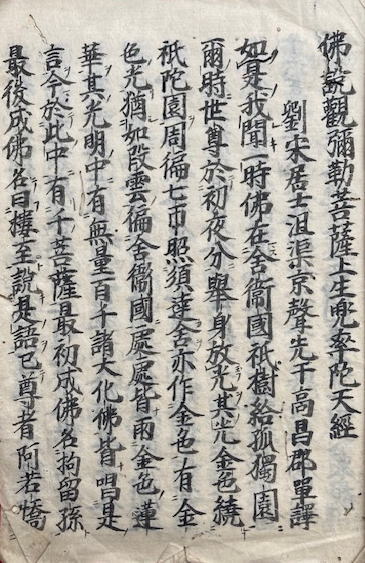 佛說觀彌勒菩薩上生兜率陀天經
劉宋居士沮渠京聲先于高昌郡單譯
如是我聞一時佛在舍衞國祇樹給孤獨園
爾時世尊於初夜分舉身放光其光金色繞
祇陀園周徧七帀照須達舍亦作金色有金
色光猶如段雲徧舍衞國處處皆雨金色蓮
華其光明中有無量百千諸大化佛皆唱是
言今於此中有千菩薩最初成佛名拘留孫
最後成佛名曰樓至說是語已尊者阿若憍